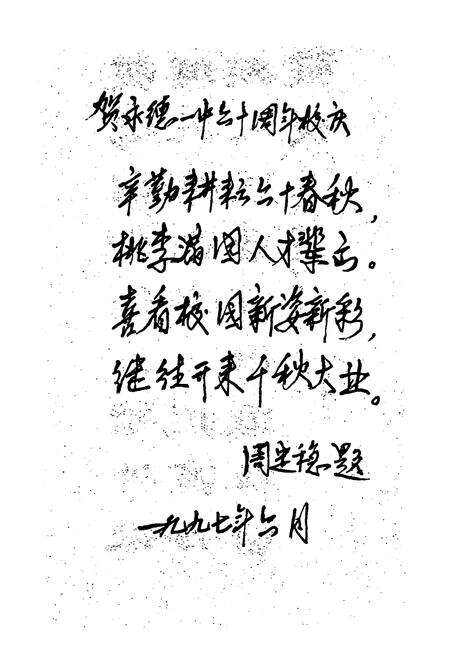 贺永德一中六十周年校庆
辛勤耕耘六十春秋，
桃李满园人才辈出。
喜看校园新姿新彩，
继往开来千秋大业。
周 德题
一九九七年六月